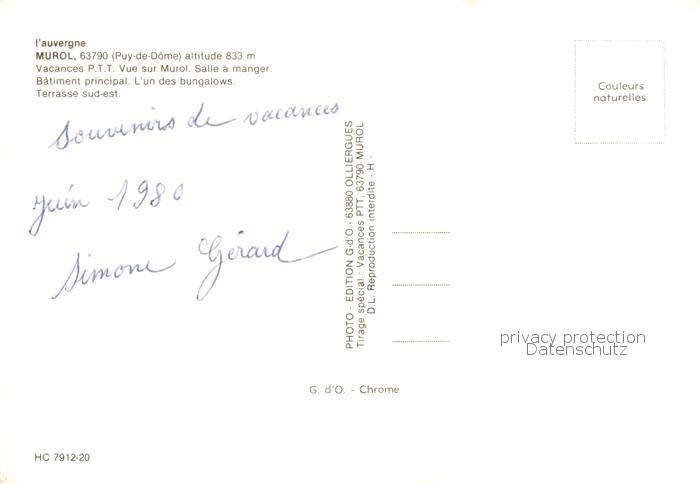 l'auvergne
MUROL, 63790 (Puy-de-Dôme) altitude 833 m
Vacances P.T.T. Vue sur Murol. Salle à manger.
Bâtiment principal. L'un des bungalows.
Terrasse sud-est.
Souvenirs de vacances
juin 1980
Simone Gérard
PHOTO - EDITION G-d'O - 63880 OLLIERGUES
Tirage spécial : Vacances PTT, 63790 MUROL
D.L. Reproduction interdite - H -
Couleurs
naturelles
privacy protection
Datenschutz
G. d'O. - Chrome
HC 7912-20